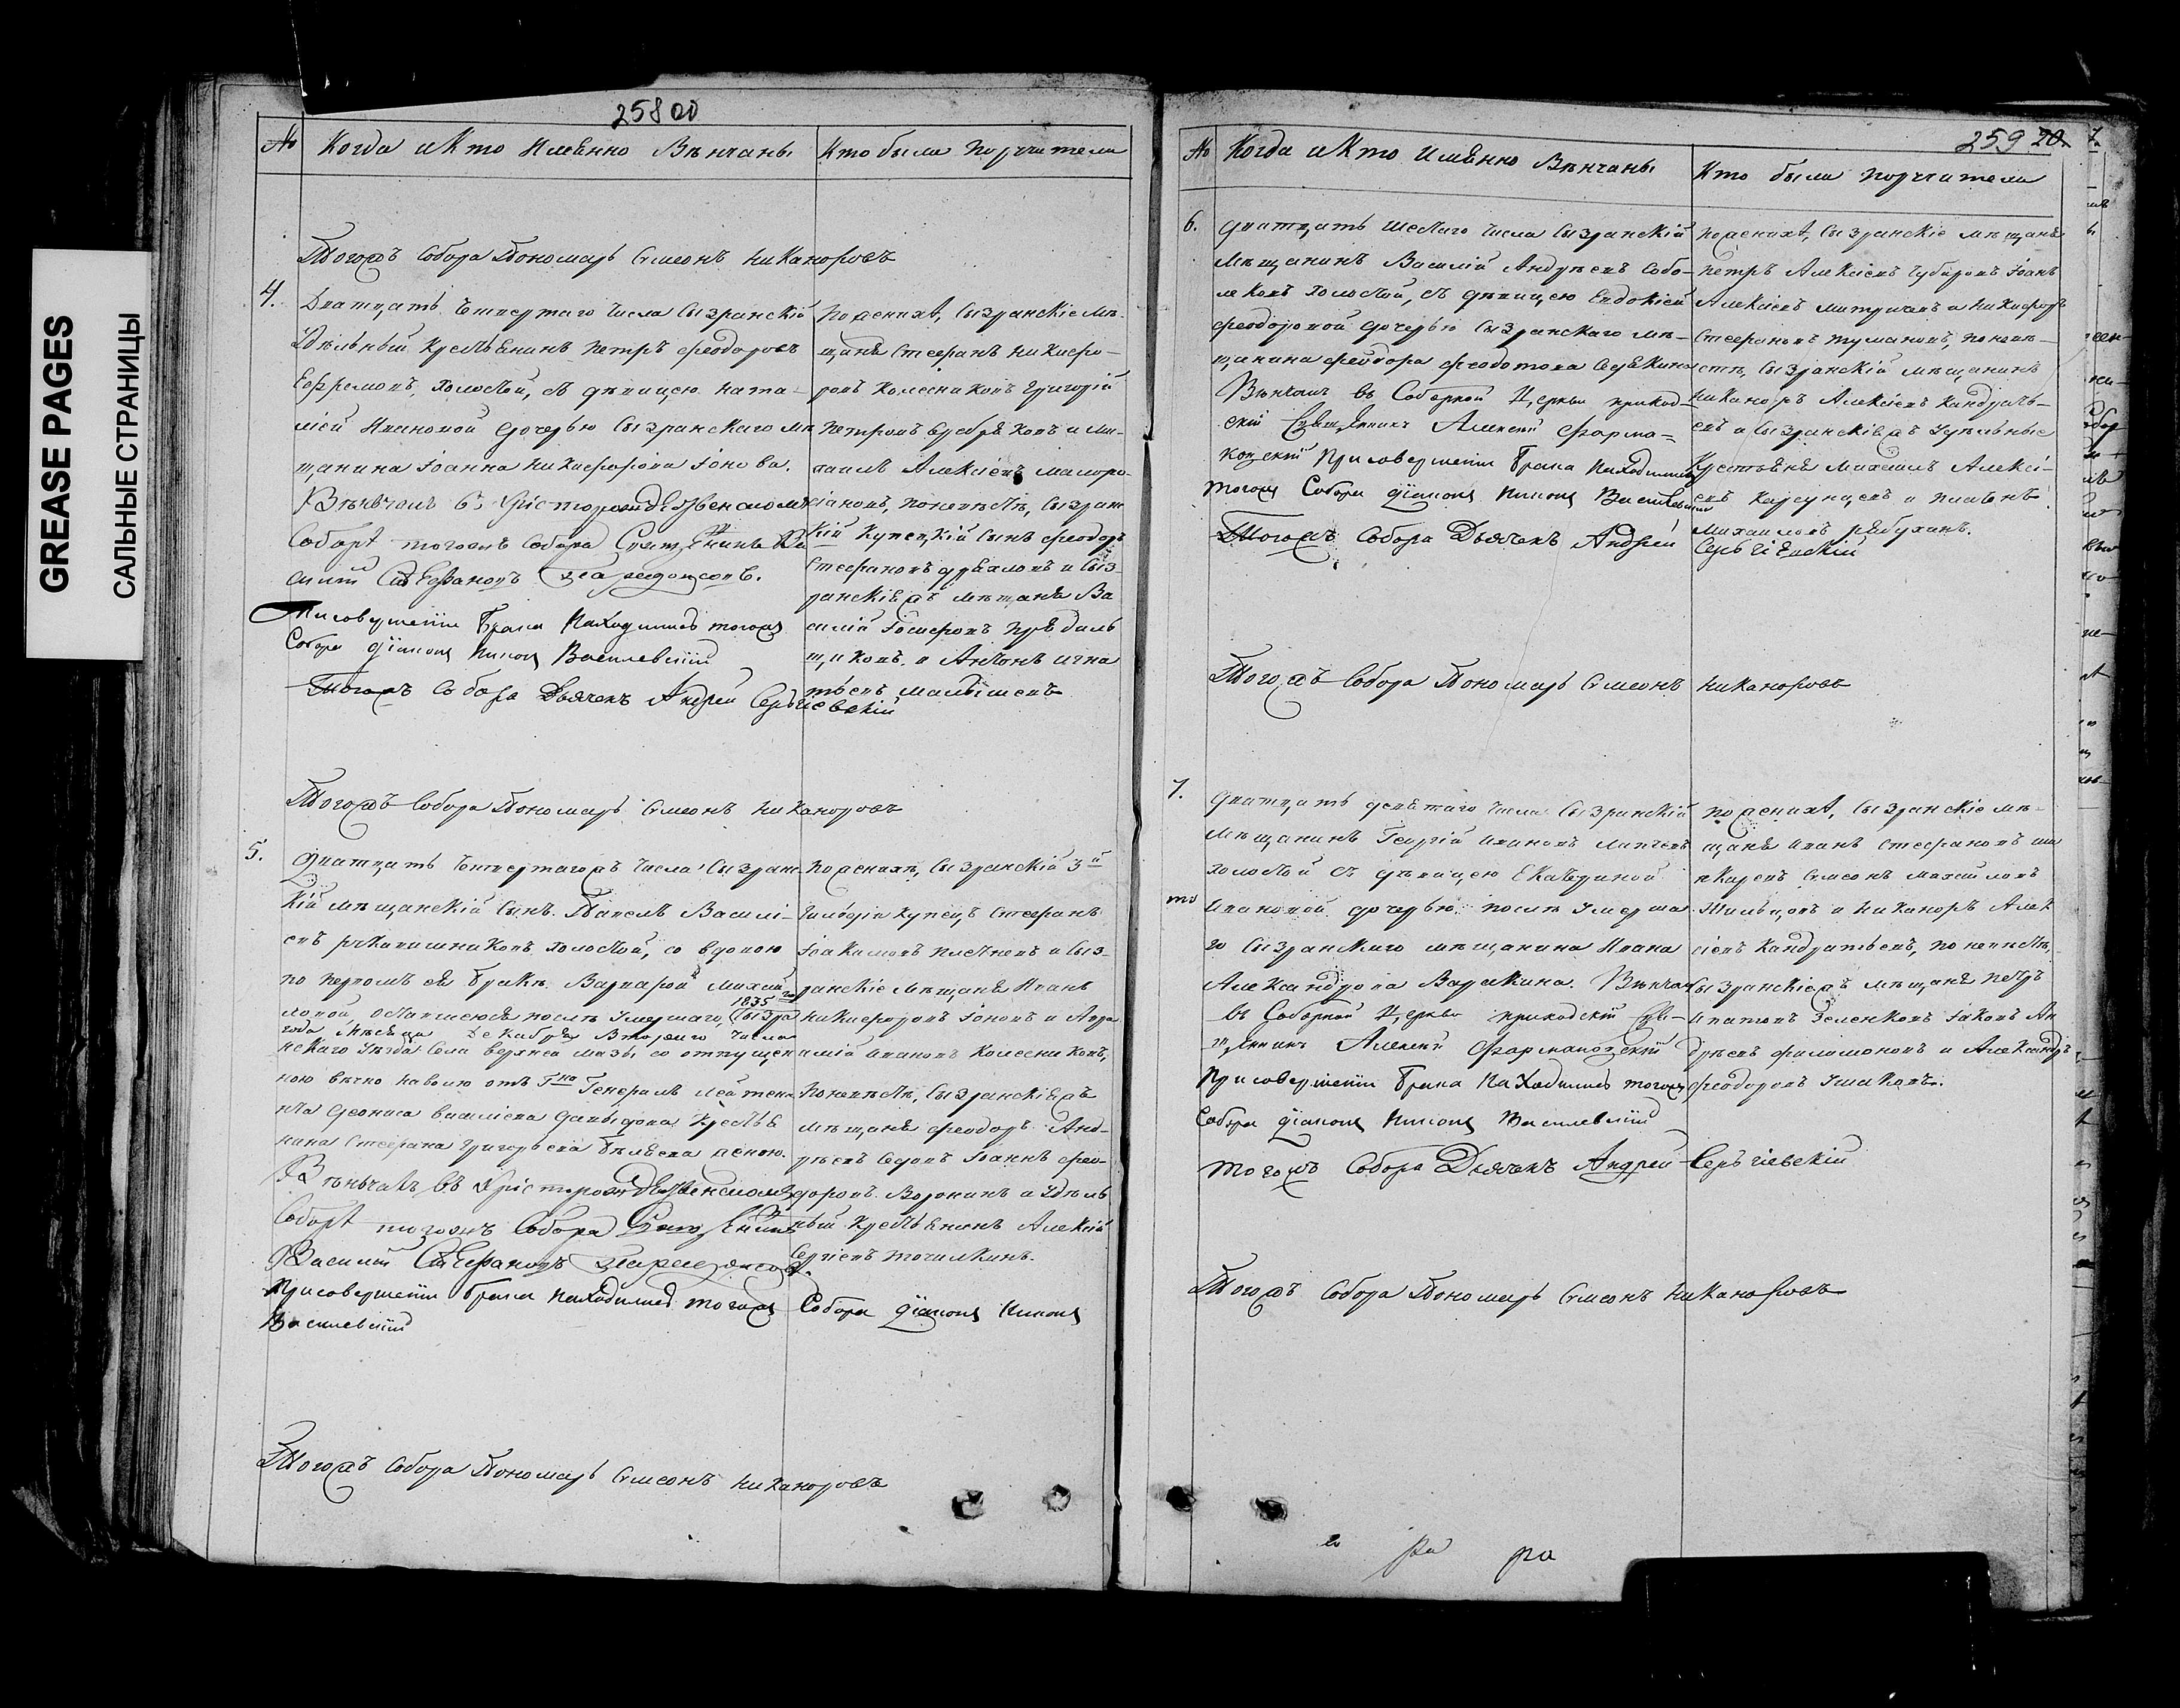 GREASE PAGES
САЛЬНЫЕ СТРАНИЦЫ
258
№ Когда и Кто Именно Вѣнчаны
Кто были поручители
Тогожъ Собора Пономарь Симеонъ Никаноровъ
4. Дватцать Четвертаго Числа Сызранскій
Удѣльный Крестьянинъ Петръ Феодоровъ
Ефремовъ, холостой, съ дѣвицею Ната-
ліей Ивановой дочерью Сызранскаго мѣ
щанина Іоанна Никифорова Іонова.
Вѣнчалъ въ Христорождественскомъ
Соборѣ тогожъ Собора Священникъ Ва
силій Стефановъ
При совершеніи брака находился тогожъ
Собора Діаконъ Никонъ Василевскій
Тогожъ Собора Дьячекъ Андрей Сергіевскій
По женихѣ, Сызранскіе мѣ-
щане Стефанъ Никифо-
ровъ Колесниковъ Григорій
Петровъ Серебряковъ и Ми-
хаилъ Алексіевъ
по невѣстѣ, Сызран
кій Купецкій Сынъ Феодоръ
Стефановъ и Сыз-
ранскіе жъ мѣщане Ва
силій Іосифовъ
щиковъ и Антонъ Игна
тьевъ Малышевъ
Тогожъ Собора Пономарь Симеонъ Никаноровъ
5. Дватцать Четвертагожъ Числа Сызранс
кій мѣщанскій Сынъ Павелъ Василі-
евъ Рукавишниковъ холостой, со вдовою
по первомъ ея бракѣ Варварой Михай
ловой, оставшеюся послѣ умершаго, 1835 го Сызра
года Мѣсяца Декабря Втораго Числа
нскаго Уѣзда Села Верхней Мазы со отпущен
ною вѣчно на волю отъ Гна Генералъ Лейтена
нта Дениса Васильева Давыдова Крестья
нина Стефана Григорьева женою.
Вѣнчалъ въ Христорождественскомъ
Соборѣ тогожъ Собора Священникъ
Василій Стефановъ
При совершеніи брака находился тогожъ Собора Діаконъ Никонъ
Василевскій
По женихѣ, Сызранскій 3й
Гильдіи Купецъ Стефанъ
Іоакимовъ Плетневъ и Сыз-
ранскіе Мѣщане Иванъ
Никифоровъ Іоновъ и
Ивановъ Колесниковъ,
По невѣстѣ, Сызранскіе жъ
мѣщане Феодоръ Анд-
реевъ Седовъ Іоаннъ Фео-
доровъ Воронинъ и Удѣль
ный Крестьянинъ Алексій
Сергіевъ Точилкинъ.
Тогожъ Собора Пономарь Симеонъ Никаноровъ
259 20
№ Когда и Кто Именно Вѣнчаны
Кто были поручители
6. Дватцать Шестаго Числа Сызранскій
Мѣщанинъ Василій Андреевъ Собо-
левъ холостой, съ дѣвицею Евдокіей
Феодоровой дочерью Сызранскаго мѣ-
щанина Феодора Феодотова
Вѣнчалъ въ Соборной Церкви приход-
скій Священникъ Алексій Фарма-
ковскій При совершеніи брака находился
тогожъ Собора Діаконъ Никонъ Василевскій
Тогожъ Собора Дьячекъ Андрей Сергіевскій
По женихѣ, Сызранскіе мѣщане
Петръ Алексіевъ Чубаровъ Іоанъ
Алексіевъ и Никифоръ
Стефановъ Тумановъ, по невѣ-
стѣ, Сызранскій мѣщанинъ
Никаноръ Алексіевъ Кандрать-
евъ и Сызранскіе жъ Удѣльные
Крестьяне Михаилъ Алексі-
евъ и
Михаиловъ
Тогожъ Собора Пономарь Симеонъ Никаноровъ
7. Дватцать девятаго Числа Сызранскій
Мѣщанинъ Георгій Ивановъ
холостой съ дѣвицею Екатериной
Ивановой дочерью послѣ Умерша
го Сызранскаго мѣщанина Ивана
Александрова Варакина. Вѣнчалъ
въ Соборной Церкви приходскій Свя-
щенникъ Алексій Фармаковскій
При совершеніи брака находился тогожъ
Собора Діаконъ Никонъ Василевскій
Тогожъ Собора Дьячекъ Андрей Сергіевскій
По женихѣ, Сызранскіе мѣ-
щане Иванъ Стефановъ
Симеонъ Михайловъ
и Никаноръ Алек
сіевъ Кандратьевъ, по невѣстѣ,
Сызранскіе жъ мѣщане Петръ
Ипатовъ Зеленковъ Іаковъ Ан
дреевъ Филимоновъ и Александръ
Феодоровъ Ушаковъ.
Тогожъ Собора Пономарь Симеонъ Никаноровъ